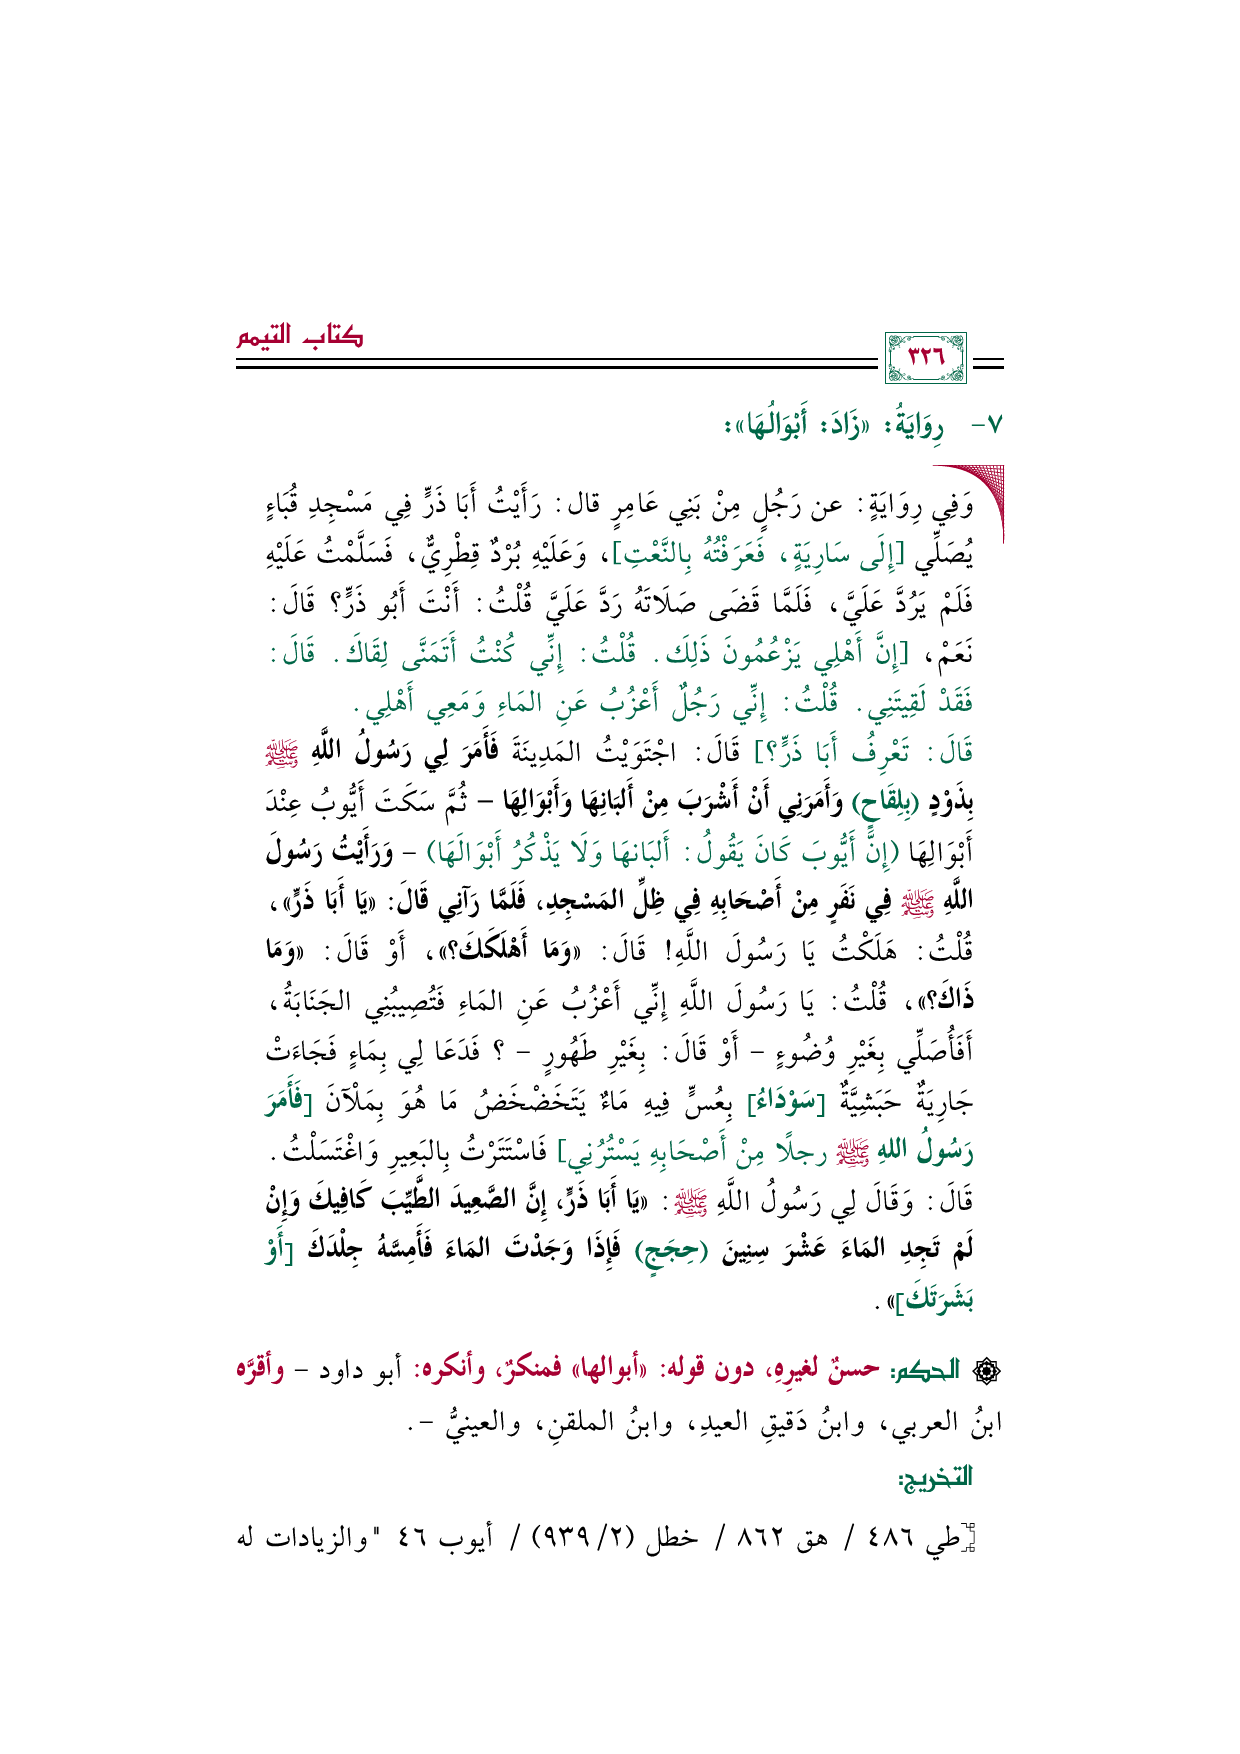 كتاب التيمم
٣٢٦
٧- رِوَايَةُ: «زَادَ: أَبْوَالُهَا»:
وَفِي رِوَايَةٍ: عن رَجُلٍ مِنْ بَنِي عَامِرٍ قال: رَأَيْتُ أَبَا ذَرٍّ فِي مَسْجِدِ قُبَاءٍ
يُصَلِّي [إِلَى سَارِيَةٍ، فَعَرَفْتُهُ بِالنَّعْتِ]، وَعَلَيْهِ بُرْدٌ قِطْرِيٌّ، فَسَلَّمْتُ عَلَيْهِ
فَلَمْ يَرُدَّ عَلَيَّ، فَلَمَّا قَضَى صَلَاتَهُ رَدَّ عَلَيَّ قُلْتُ: أَنْتَ أَبُو ذَرٍّ؟ قَالَ:
نَعَمْ، [إِنَّ أَهْلِي يَزْعُمُونَ ذَلِكَ. قُلْتُ: إِنِّي كُنْتُ أَتَمَنَّى لِقَاكَ. قَالَ:
فَقَدْ لَقِيتَنِي. قُلْتُ: إِنِّي رَجُلٌ أَعْزُبُ عَنِ المَاءِ وَمَعِي أَهْلِي.
قَالَ: تَعْرِفُ أَبَا ذَرٍّ؟] قَالَ: اجْتَوَيْتُ المَدِينَةَ فَأَمَرَ لِي رَسُولُ اللَّهِ ﷺ
بِذَوْدٍ (بِلِقَاحٍ) وَأَمَرَنِي أَنْ أَشْرَبَ مِنْ أَلبَانِهَا وَأَبْوَالِهَا – ثُمَّ سَكَتَ أَيُّوبُ عِنْدَ
أَبْوَالِهَا (إِنَّ أَيُّوبَ كَانَ يَقُولُ: أَلبَانهَا وَلَا يَذْكُرُ أَبْوَالَهَا) – وَرَأَيْتُ رَسُولَ
اللَّهِ ﷺ فِي نَفَرٍ مِنْ أَصْحَابِهِ فِي ظِلِّ المَسْجِدِ، فَلَمَّا رَآنِي قَالَ: «يَا أَبَا ذَرٍّ»،
قُلْتُ: هَلَكْتُ يَا رَسُولَ اللَّهِ! قَالَ: «وَمَا أَهْلَكَكَ؟»، أَوْ قَالَ: «وَمَا
ذَاكَ؟»، قُلْتُ: يَا رَسُولَ اللَّهِ إِنِّي أَعْزُبُ عَنِ المَاءِ فَتُصِيبُنِي الجَنَابَةُ،
أَفَأُصَلِّي بِغَيْرِ وُضُوءٍ – أَوْ قَالَ: بِغَيْرِ طَهُورٍ – ؟ فَدَعَا لِي بِمَاءٍ فَجَاءَتْ
جَارِيَةٌ حَبَشِيَّةٌ [سَوْدَاءُ] بِعُسٍّ فِيهِ مَاءٌ يَتَخَضْخَضُ مَا هُوَ بِمَلْآنَ [فَأَمَرَ
رَسُولُ اللهِ ﷺ رجلًا مِنْ أَصْحَابِهِ يَسْتُرُنِي] فَاسْتَتَرْتُ بِالبَعِيرِ وَاغْتَسَلْتُ.
قَالَ: وَقَالَ لِي رَسُولُ اللَّهِ ﷺ: «يَا أَبَا ذَرٍّ، إِنَّ الصَّعِيدَ الطَّيِّبَ كَافِيكَ وَإِنْ
لَمْ تَجِدِ المَاءَ عَشْرَ سِنِينَ (حِجَجٍ) فَإِذَا وَجَدْتَ المَاءَ فَأَمِسَّهُ جِلْدَكَ [أَوْ
بَشَرَتَكَ]».
الحكم: حسنٌ لغيرِهِ، دون قوله: «أبوالها» فمنكرٌ، وأنكره: أبو داود – وأقرَّه
ابنُ العربي، وابنُ دَقيقِ العيدِ، وابنُ الملقنِ، والعينيُّ –.
التخريج:
[طي ٤٨٦ / هق ٨٦٢ / خطل (٢/ ٩٣٩) / أيوب ٤٦ "والزيادات له